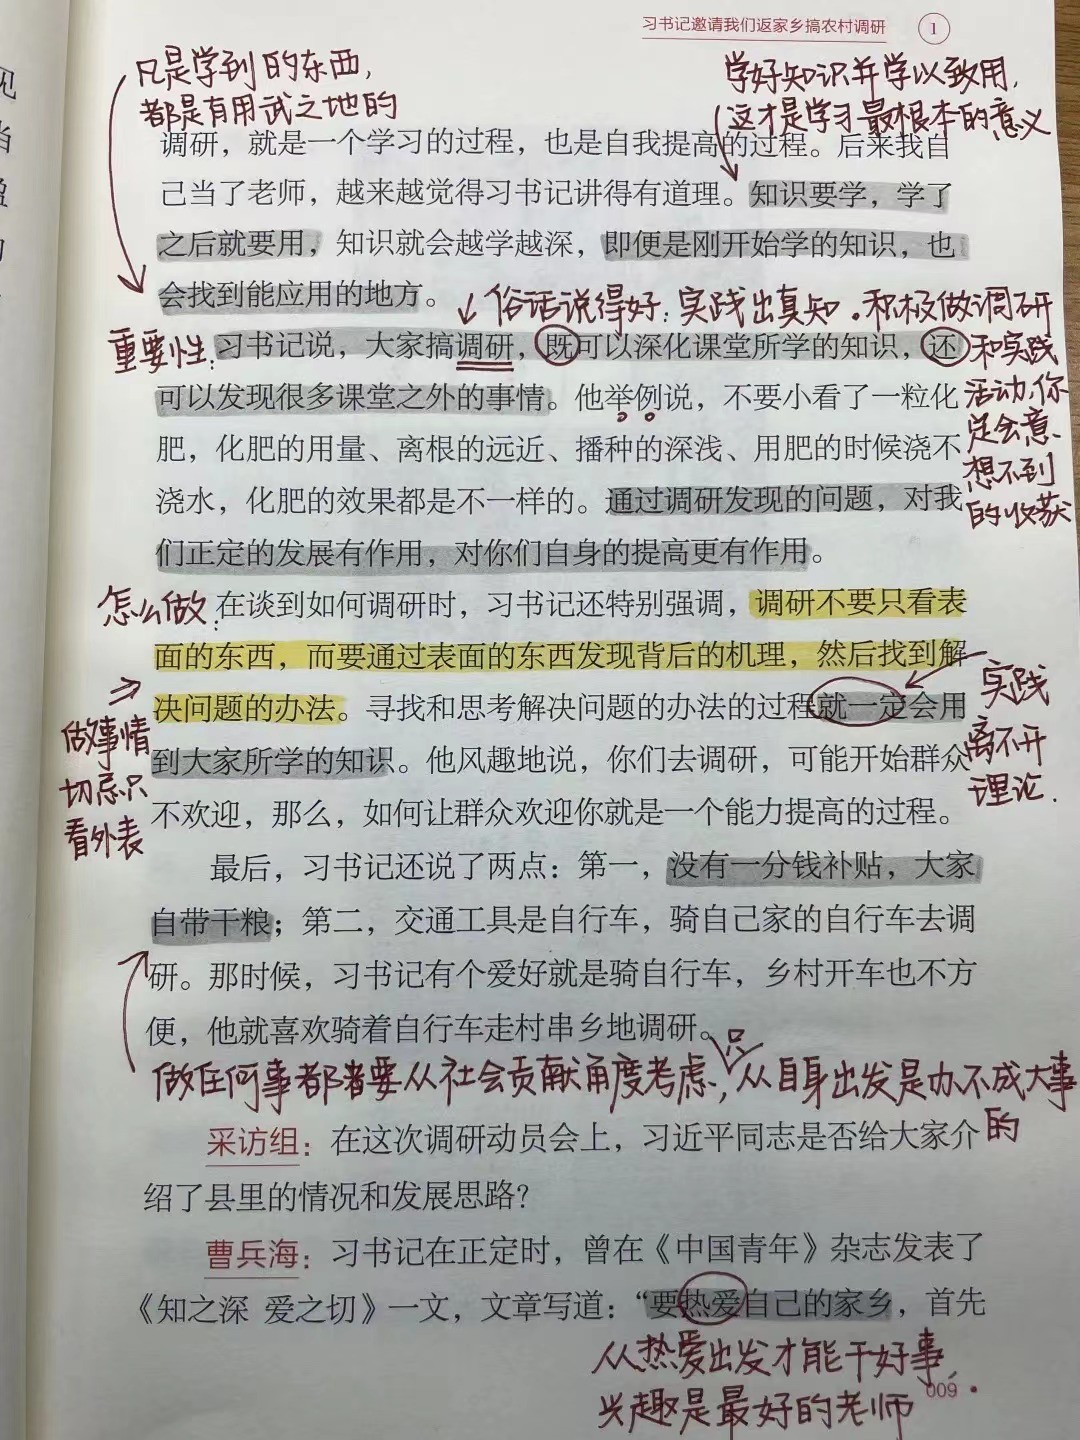 习书记邀请我们返家乡搞农村调研 1
凡是学到的东西，
都是有用武之地的
学好知识并学以致用，
这才是学习最根本的意义
调研，就是一个学习的过程，也是自我提高的过程。后来我自
己当了老师，越来越觉得习书记讲得有道理。知识要学，学了
之后就要用，知识就会越学越深，即便是刚开始学的知识，也
会找到能应用的地方。
俗话说得好：实践出真知。积极做调研
和实践
活动，你
定会意
想不到
的收获
重要性：
习书记说，大家搞调研，既可以深化课堂所学的知识，还
可以发现很多课堂之外的事情。他举例说，不要小看了一粒化
肥，化肥的用量、离根的远近、播种的深浅、用肥的时候浇不
浇水，化肥的效果都是不一样的。通过调研发现的问题，对我
们正定的发展有作用，对你们自身的提高更有作用。
怎么做：
在谈到如何调研时，习书记还特别强调，调研不要只看表
面的东西，而要通过表面的东西发现背后的机理，然后找到解
决问题的办法。寻找和思考解决问题的办法的过程就一定会用
到大家所学的知识。他风趣地说，你们去调研，可能开始群众
不欢迎，那么，如何让群众欢迎你就是一个能力提高的过程。
做事情
切忌只
看外表
实践
离不开
理论.
最后，习书记还说了两点：第一，没有一分钱补贴，大家
自带干粮；第二，交通工具是自行车，骑自己家的自行车去调
研。那时候，习书记有个爱好就是骑自行车，乡村开车也不方
便，他就喜欢骑着自行车走村串乡地调研。
做任何事都要从社会贡献角度考虑，只从自身出发是办不成大事
的
采访组：在这次调研动员会上，习近平同志是否给大家介
绍了县里的情况和发展思路？
曹兵海：习书记在正定时，曾在《中国青年》杂志发表了
《知之深 爱之切》一文，文章写道：“要热爱自己的家乡，首先
从热爱出发才能干好事，
兴趣是最好的老师
009